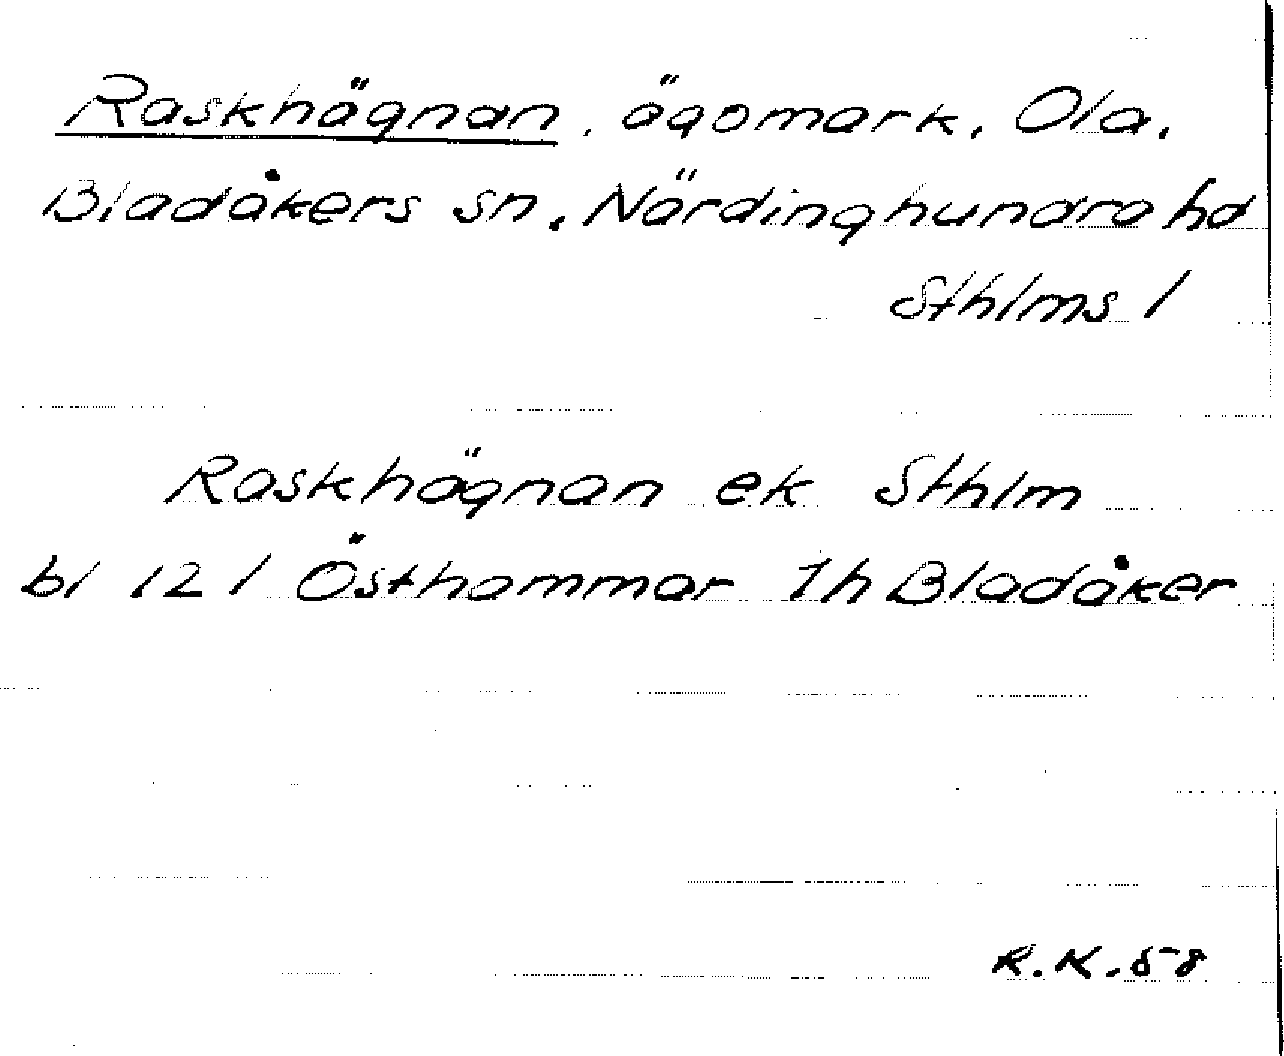 Raskhägnan, ägomark, Ola,
Bladåkers sn, Närdinghundra hd
Sthlms l
Raskhägnan ek Sthlm
bl 12 l Östhammar Ih Bladåker
R.K.58